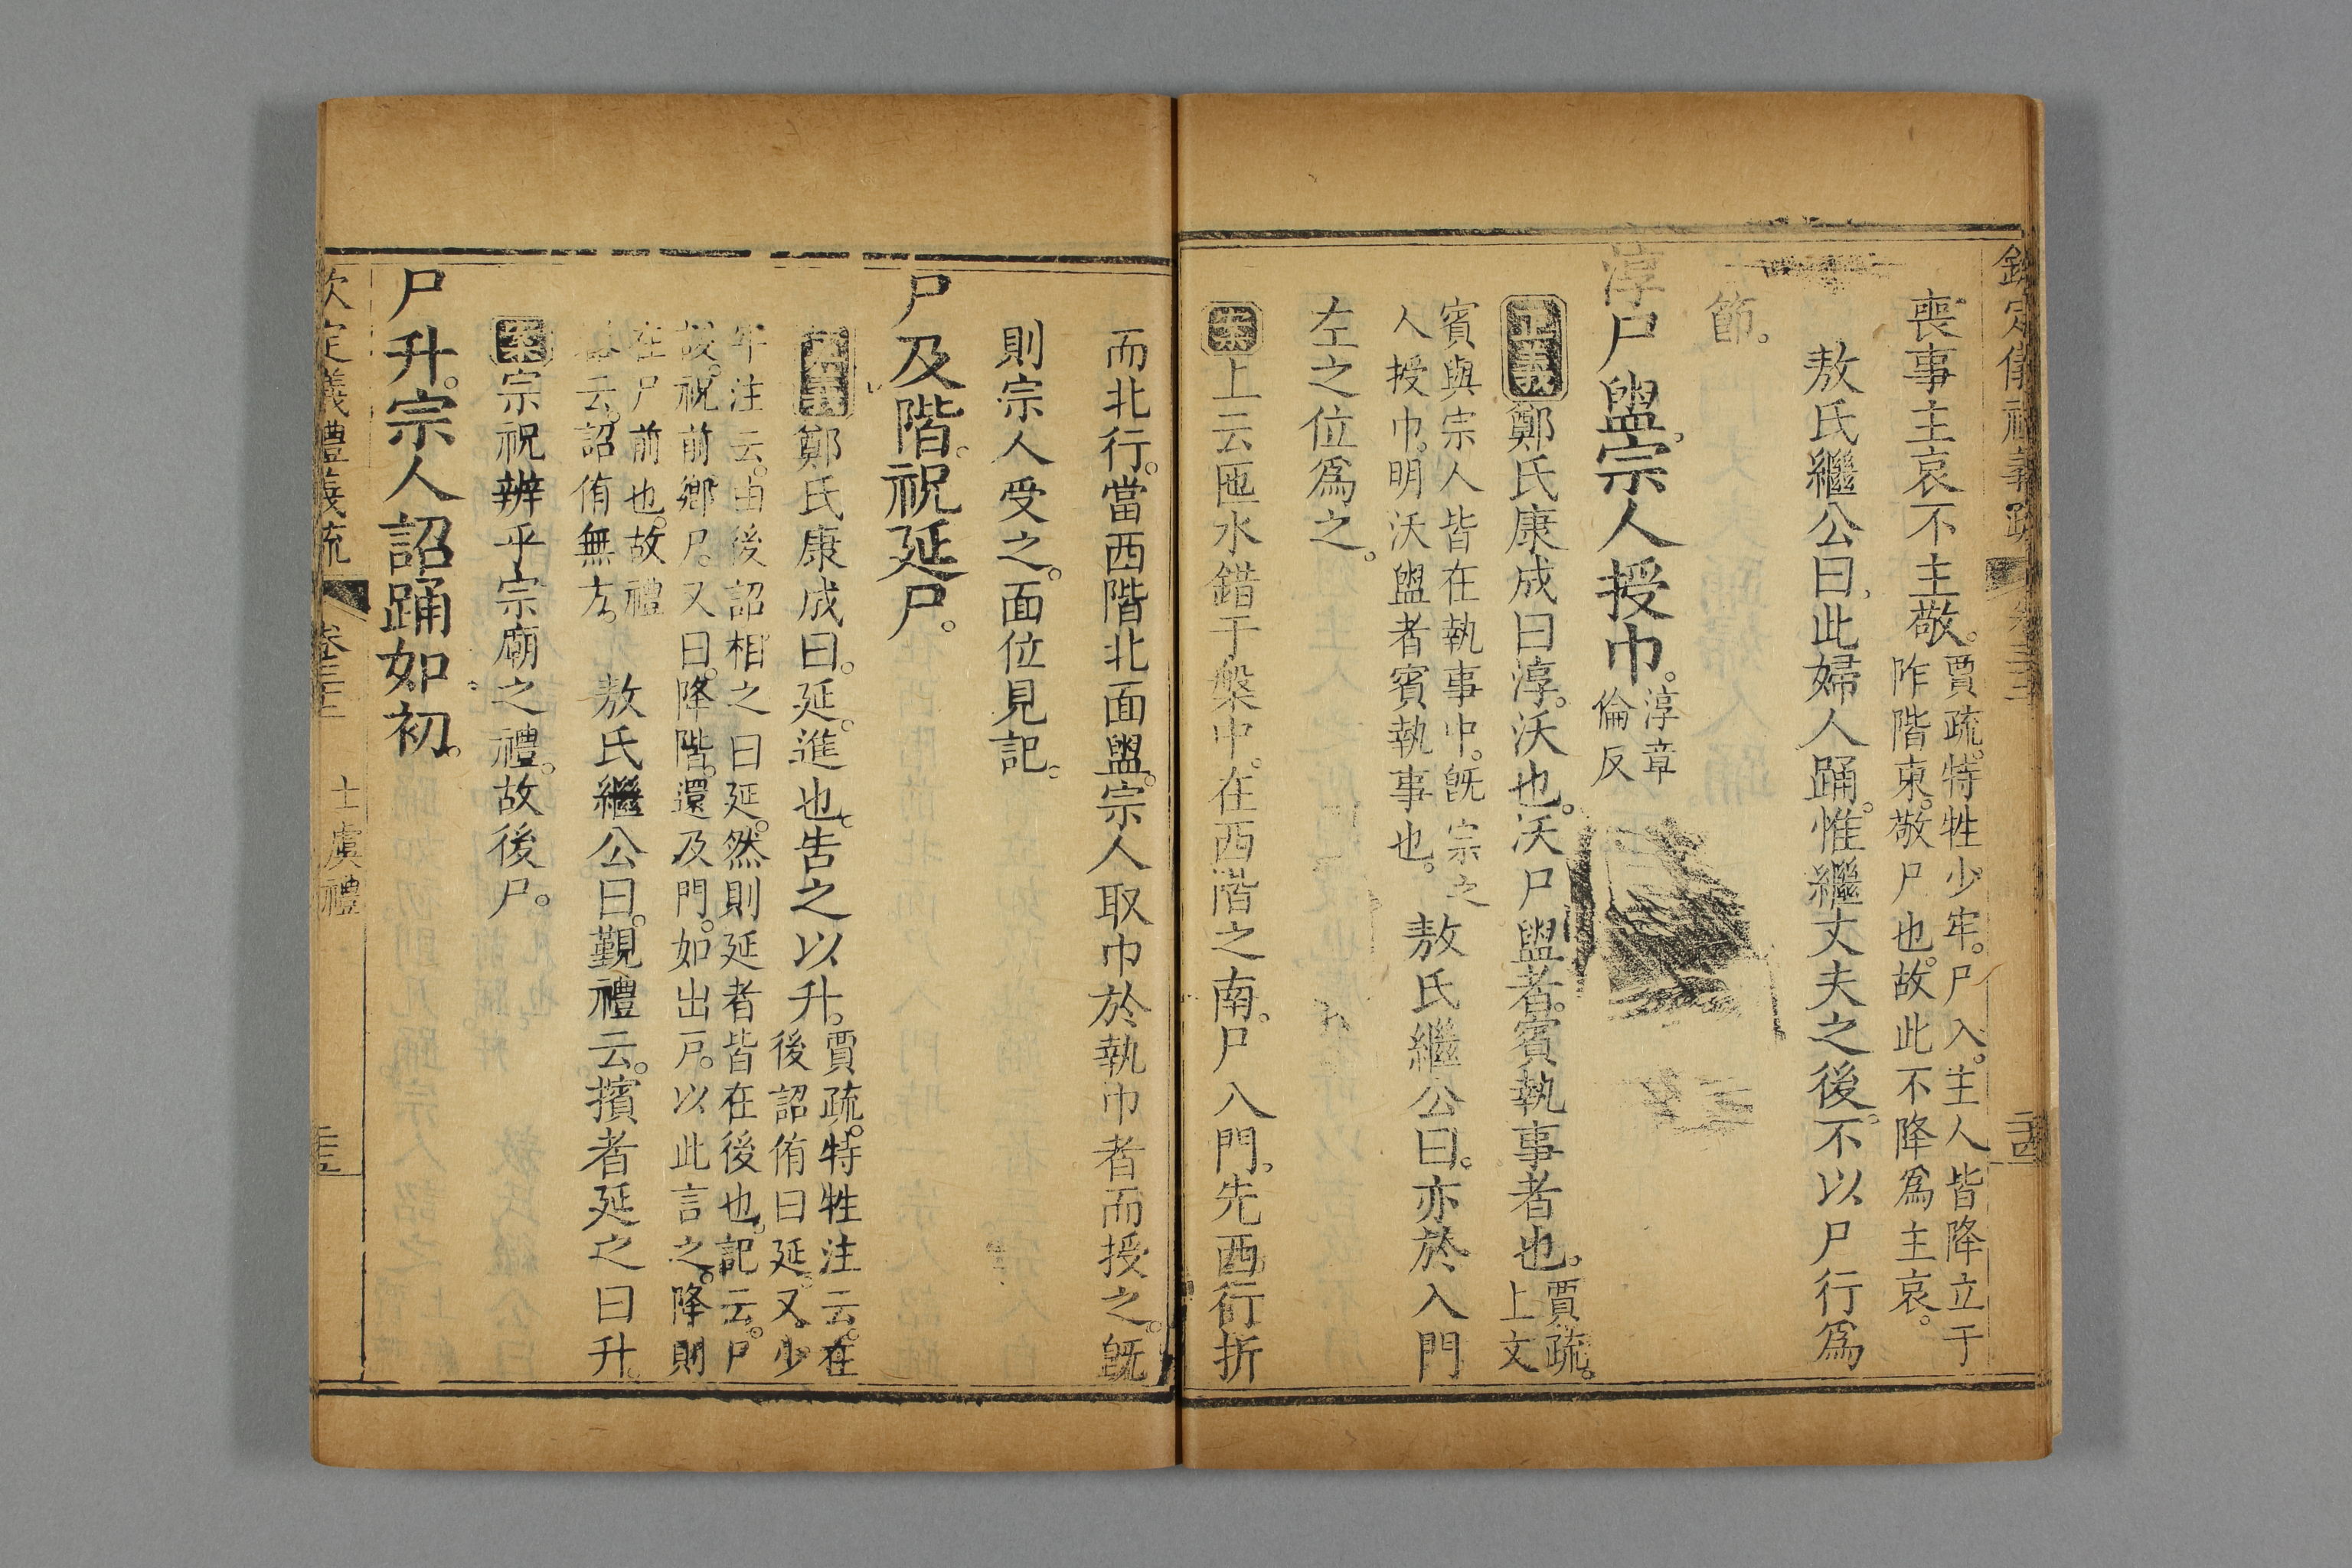 欽定儀禮義疏 卷三十三 二十四
喪事主哀不主敬。賈疏。特牲少牢。尸入。主人皆降立于
阼階東。敬尸也。故此不降。爲主哀。
敖氏繼公曰。此婦人踊。惟繼丈夫之後。不以尸行爲
節。
淳尸盥。宗人授巾。淳章
倫反
正義鄭氏康成曰。淳。沃也。沃尸盥者。賓執事者也。賈疏。
上文
賓與宗人皆在執事中。旣宗之
人授巾。明沃盥者賓執事也。敖氏繼公曰。亦於入門
左之位爲之。
案上云匜水錯于槃中。在西階之南。尸入門。先西行折
而北行。當西階北面盥。宗人取巾於執巾者而授之。旣
則宗人受之。面位見記。
尸及階。祝延尸。
正義鄭氏康成曰。延。進也。告之以升。賈疏。特牲注云。在
後詔侑曰延。又少
牢注云。由後詔相之曰延。然則延者皆在後也。記云。尸
謖。祝前鄉尸。又曰。降階。還及門。如出戶。以此言之。降則
在尸前也。故禮
器云。詔侑無方。敖氏繼公曰。覲禮云。擯者延之曰升。
案宗祝辨乎宗廟之禮。故後尸。
尸升。宗人詔踊如初。
欽定義禮義疏 卷三十三 士虞禮